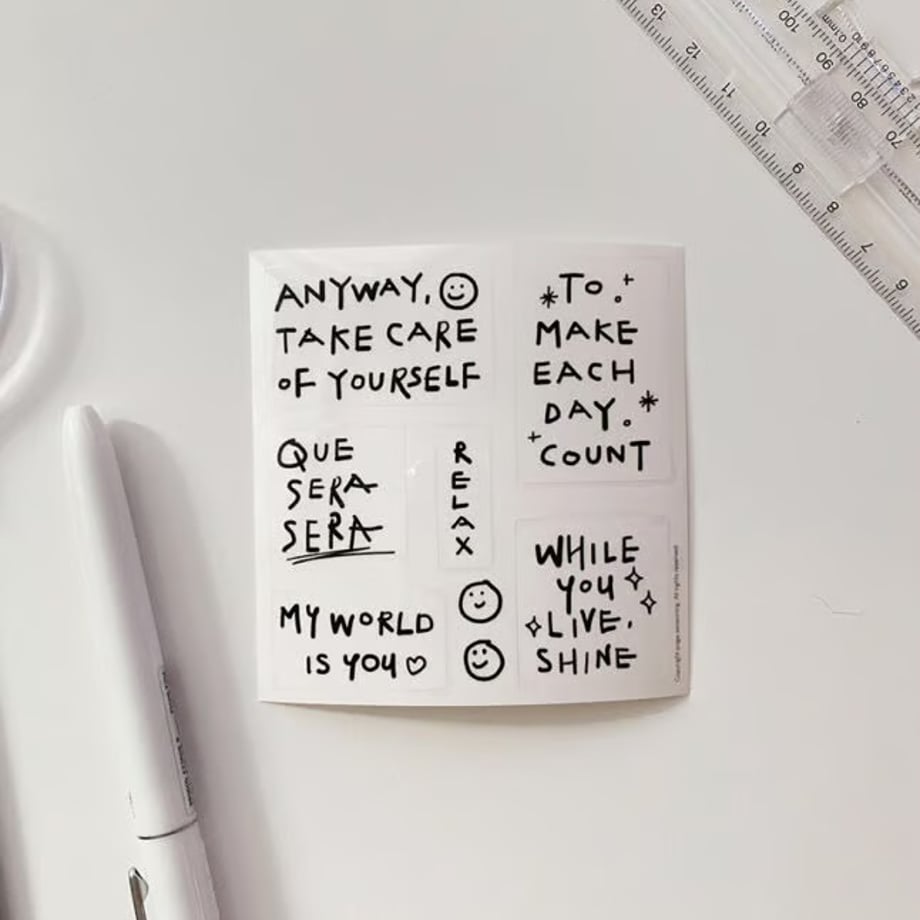 ANYWAY,
TAKE CARE
OF YOURSELF
TO.
MAKE
EACH
DAY.
COUNT
QUE
SERA
SERA
R
E
L
A
X
WHILE
YOU
LIVE,
SHINE
MY WORLD
IS YOU
13
12
11
10
9
8
7
6
100
90
80
70
0.1mm